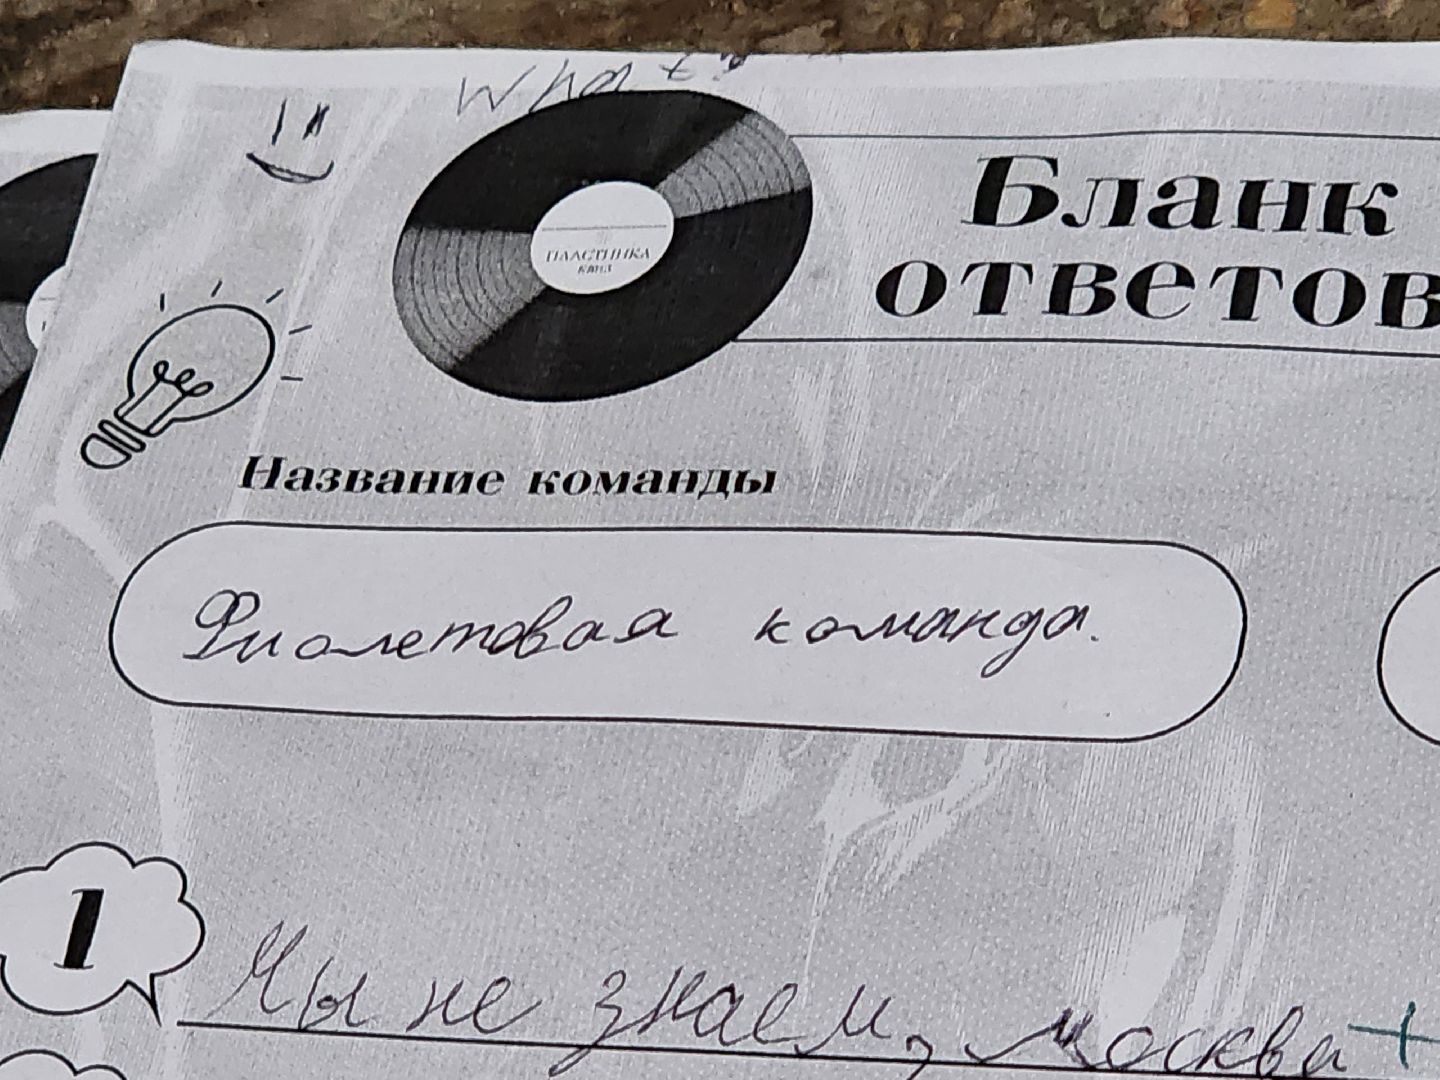 What
Бланк
ответов
ПЛАСТИНКА
КВИЗ
Название команды
Фиолетовая команда.
1
Мы не знаем, москва +